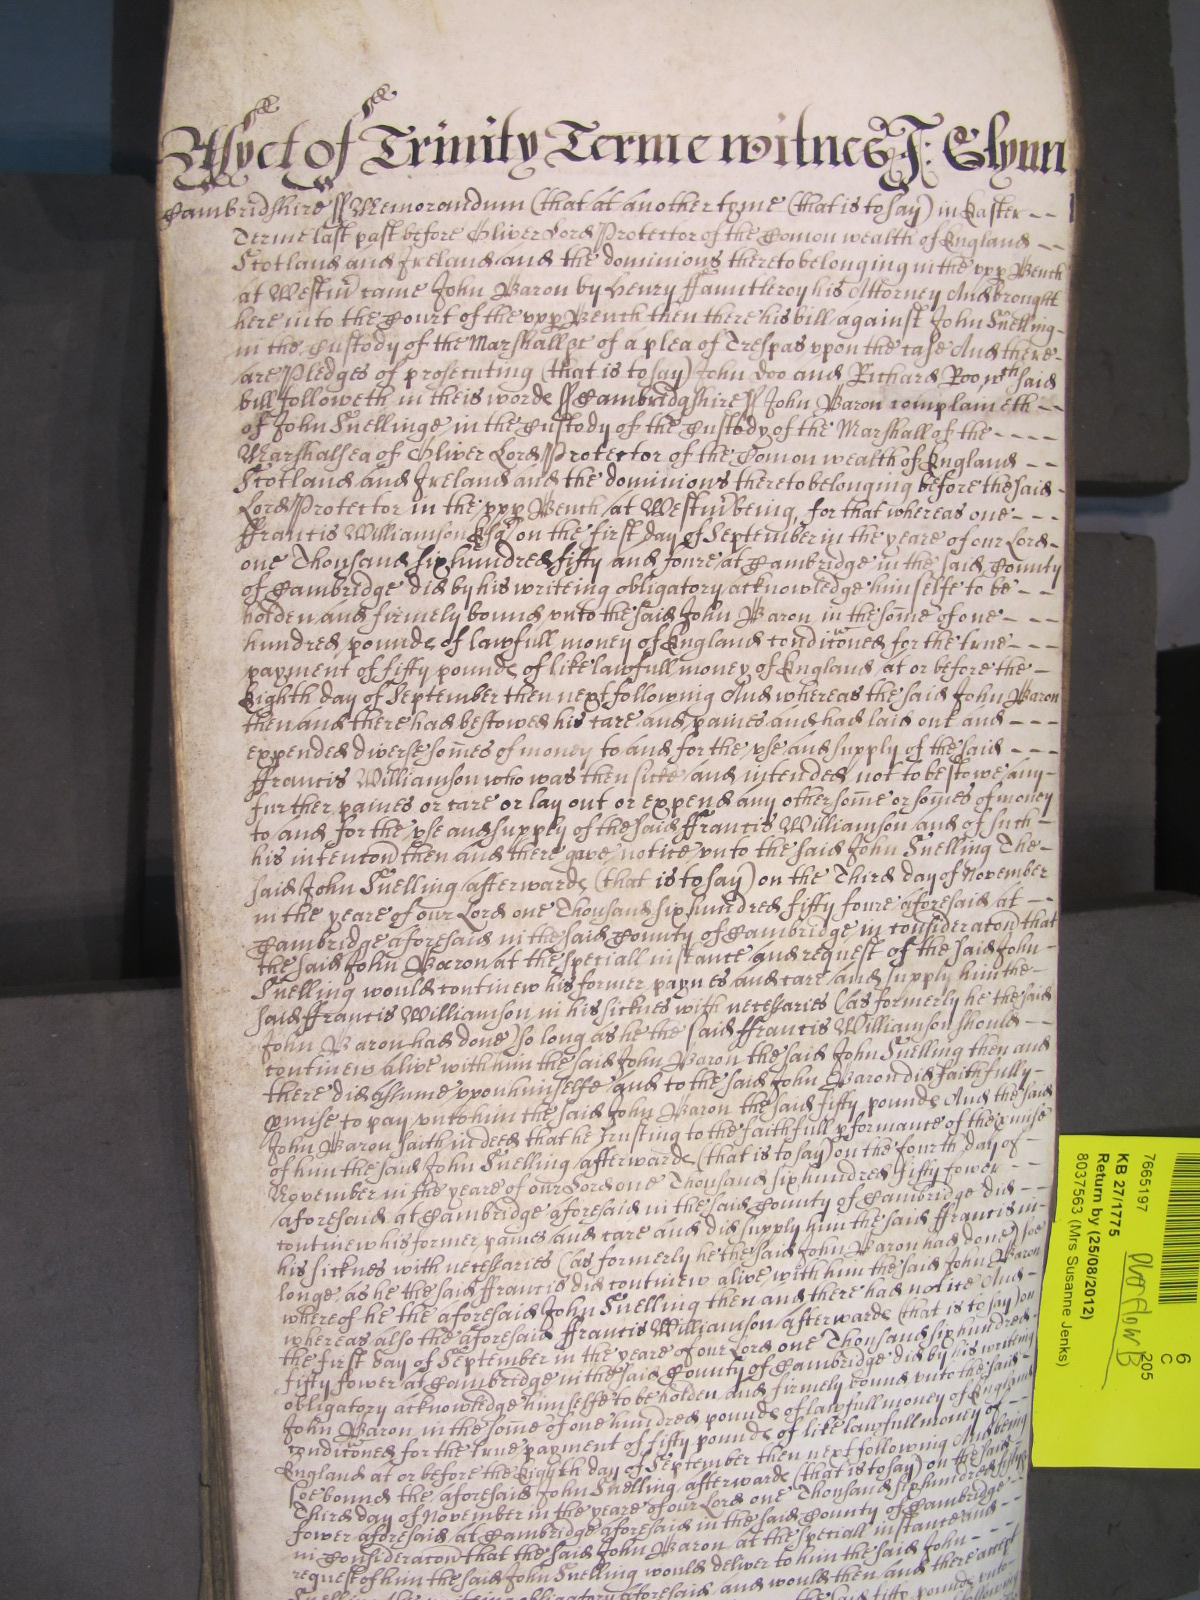 Asyet of Trinity Terme witnes J: Glynn
Cambridshire ss Memorandum (that at another tyme (that is to say) in Easter - -
Terme last past before Oliver Lord Protector of the Comon wealth of England - -
Scotland and Ireland and the dominions thereto belonging in the vpp Bench
at Westmr came John Baron by Henry ffauntleroy his Attorney And brought
here into the Court of the vpp Bench then there his bill against John Snelling -
in the Custody of the Marshall &c of a plea of Trespas vpon the case And there -
are Pledges of prosecuting (that is to say) John Doo and Richard Roo wch said
bill followeth in theis words ss Cambridgshire ss John Baron complaineth - -
of John Snellinge in the Custody of the Custody of the Marshall of the - - - -
Marshalsea of Oliver Lord Protector of the Comon wealth of England - -
Scotland and Ireland and the dominions thereto belonging before the said -
Lord Protector in the vpp Bench at Westmr being, for that whereas one - - -
ffrancis Williamson Esqr on the first day of September in the yeare of our Lord -
one Thousand six hundred fifty and foure at Cambridge in the said County
of Cambridge did by his writeing obligatory acknowledge himselfe to be - -
holden and firmely bound vnto the said John Baron in the some of one - - -
hundred pounds of lawfull money of England conditioned for the true - - -
payment of fifty pounds of like lawfull money of England at or before the -
Eighth day of September then next following And whereas the said John Baron
then and there had bestowed his care and paines and had laid out and - - -
expended diverse somes of money to and for the vse and supply of the said - - -
ffrancis Williamson who was then sicke and intended not to bestowe any -
further paines or care or lay out or expend any other some or somes of money
to and for the vse and supply of the said ffrancis Williamson and of such -
his intencon then and there gave notice vnto the said John Snelling The -
said John Snelling afterwards (that is to say) on the Third day of November
in the yeare of our Lord one Thousand six hundred fifty foure aforesaid at - -
Cambridge aforesaid in the said County of Cambridge in consideracon that
the said John Baron at the speciall instance and request of the said John -
Snelling would continew his former paynes and care and supply him the -
said ffrancis Williamson in his sicknes with necessaries (as formerly he the said
John Baron had done) so long as he the said ffrancis Williamson should - -
continew alive with him the said John Baron the said John Snelling then and
there did assume vpon himselfe and to the said John Baron did faithfully -
pmise to pay vnto him the said John Baron the said fifty pounds And the said
John Baron saith indeed that he trusting to the faithfull pformance of the pmise
of him the said John Snelling afterwards (that is to say) on the fourth day of -
November in the yeare of our Lord one Thousand six hundred fifty fower - -
aforesaid at Cambridge aforesaid in the said County of Cambridge did - -
continew his former paines and care and did supply him the said ffrancis in -
his sicknes with necessaries (as formerly he the said John Baron had done) soe
longe as he the said ffrancis did continew alive with him the said John Baron
whereof he the aforesaid John Snelling then and there had notice And -
whereas also the aforesaid ffrancis Williamson afterwards (that is to say) on
the first day of September in the yeare of our Lord one Thousand six hundred -
fifty fower at Cambridge in the said County of Cambridge did by his writeing
obligatory acknowledge himselfe to be holden and firmely bound vnto the said -
John Baron in the some of one hundred pounds of lawfull money of England
conditioned for the true payment of fifty pounds of like lawfull money of -
England at or before the Eighth day of September then next following And being
soe bound the aforesaid John Snelling afterwards (that is to say) on the said -
Third day of November in the yeare of our Lord one Thousand six hundred fifty
fower aforesaid at Cambridge aforesaid in the said County of Cambridge -
in Consideracon that the said John Baron at the speciall instance and - -
request of him the said John Snelling would deliver to him the said John - - -
Snelling the writeing obligatory aforesaid and would then and there accept
the said fifty pounds vnto
7665197
KB 27/1775
Return by (25/08/2012)
8037563 (Mrs Susanne Jenks)
6
C
205
overflow B